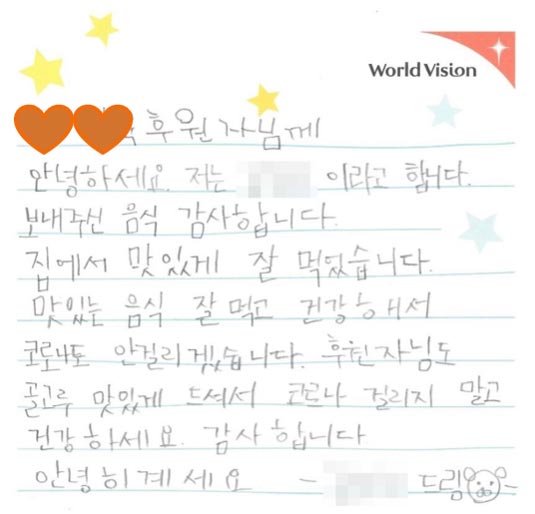 World Vision
후원자님께
안녕하세요. 저는 이라고 합니다.
보내주신 음식 감사합니다.
집에서 맛있게 잘 먹었습니다.
맛있는 음식 잘 먹고 건강해서
코로나도 안걸리겠습니다. 후원자님도
골고루 맛있게 드셔서 코로나 걸리지 말고
건강하세요. 감사합니다
안녕히계세요 - 드림-